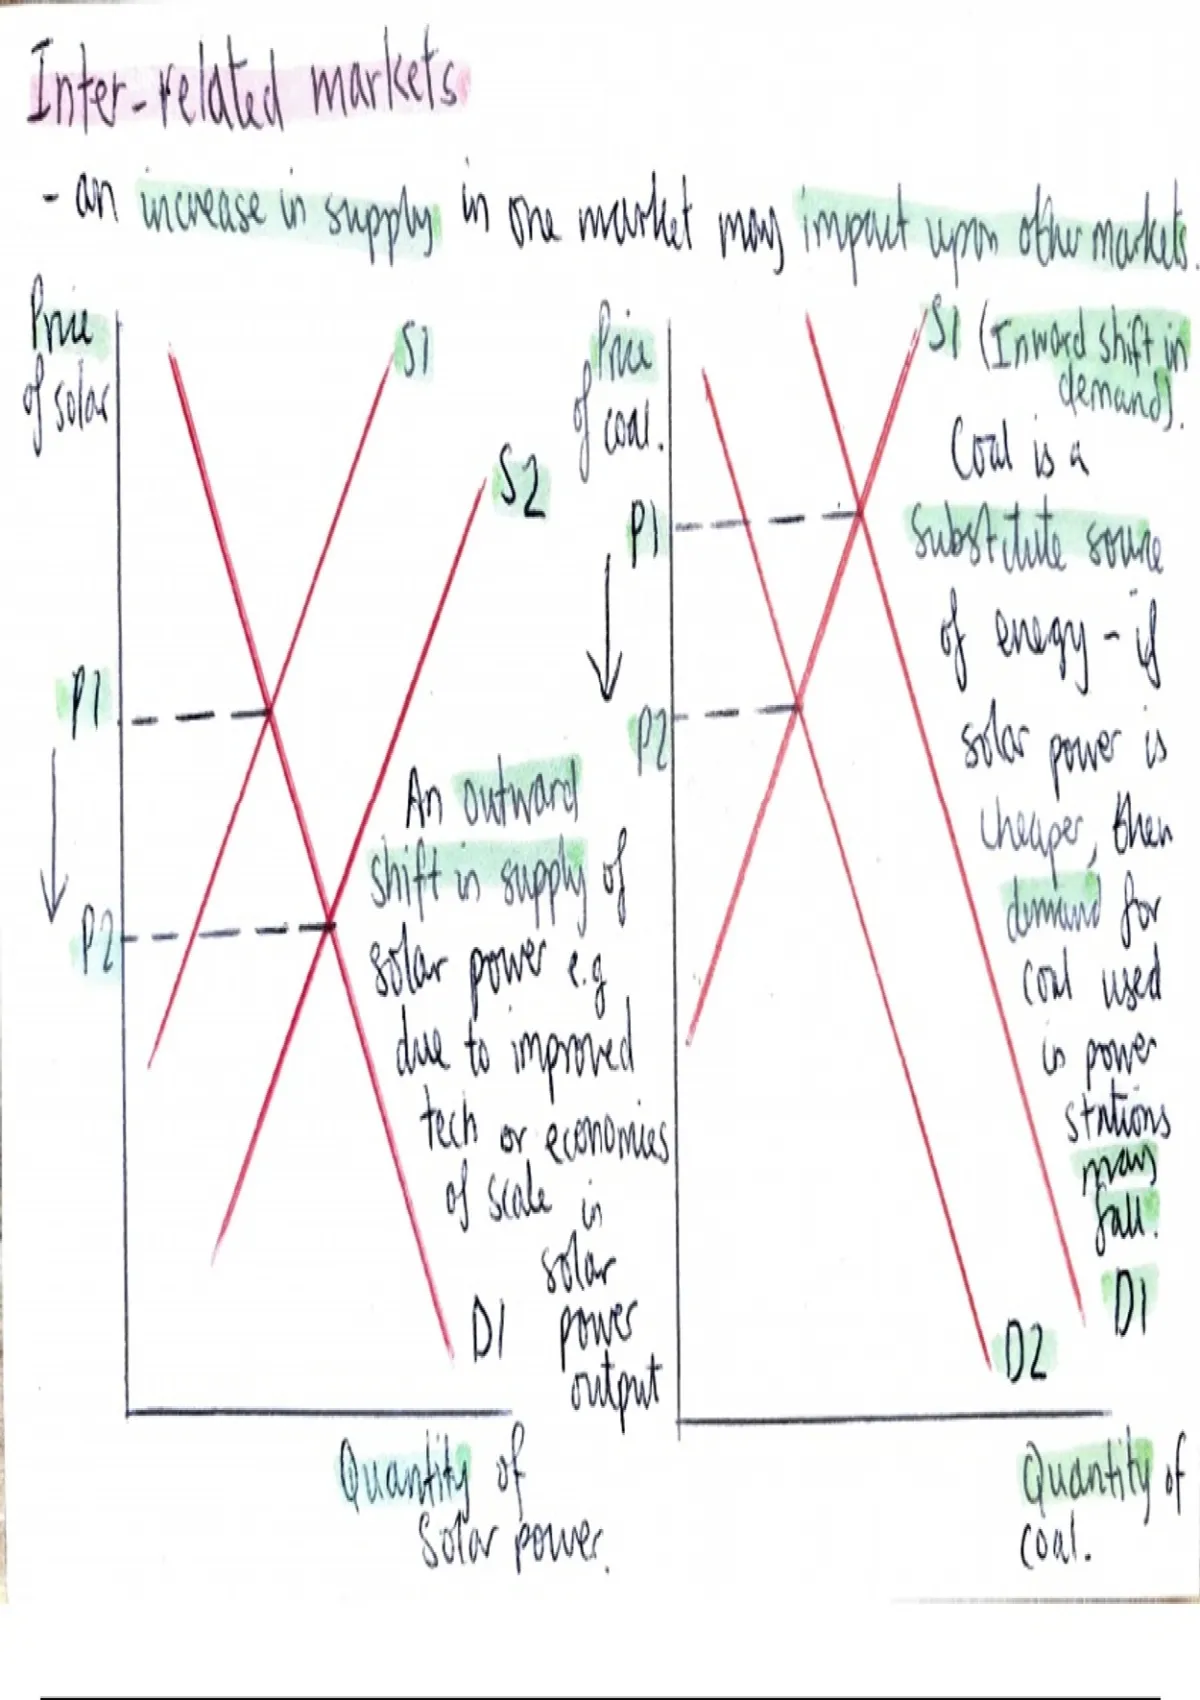 Inter-related markets
- an increase in supply in one market may impact upon other markets.
Price
of solar
S1
S2
P1
P2
An outward
shift in supply of
solar power e.g
due to improved
tech or economies
of scale in
solar
power
output
D1
Quantity of
Solar power.
Price
of coal.
P1
P2
S1 (Inward shift in
demand).
Coal is a
substitute source
of energy - if
solar power is
cheaper, then
demand for
coal used
in power
stations
may
fall.
D1
D2
Quantity of
coal.